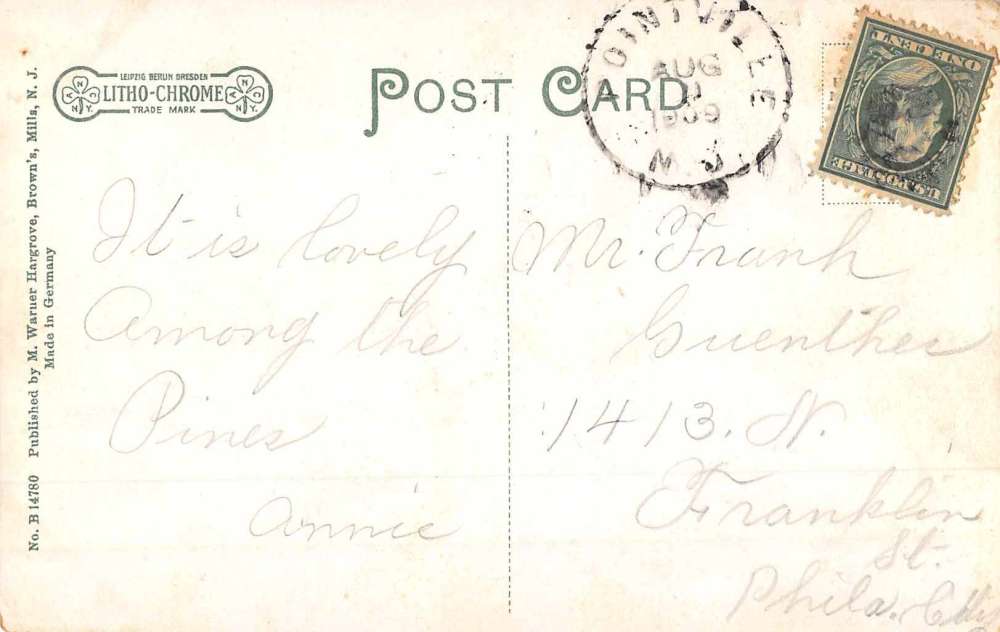 No. B 14780 Published by M. Warner Hargrove, Brown's, Mills, N. J.
Made in Germany
LEIPZIG BERLIN DRESDEN
LITHO-CHROME
TRADE MARK
N.Y.
POST CARD
POINTVILLE
AUG
1909
N.J.
U.S. POSTAGE
ONE CENT
It is lovely
Among the
Pines
Annie
Mr. Frank
Guenther
1413. N.
Franklin
St.
Phila.